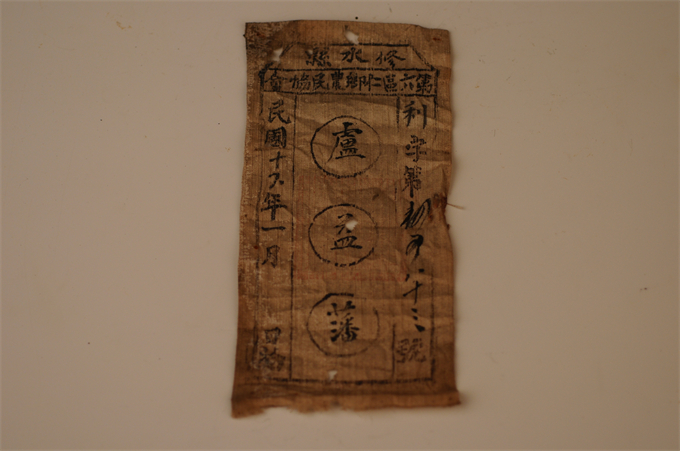 修水縣
第六區仁鄉農民協會
利字第八十三號
盧益藩
民國十六年一月日給